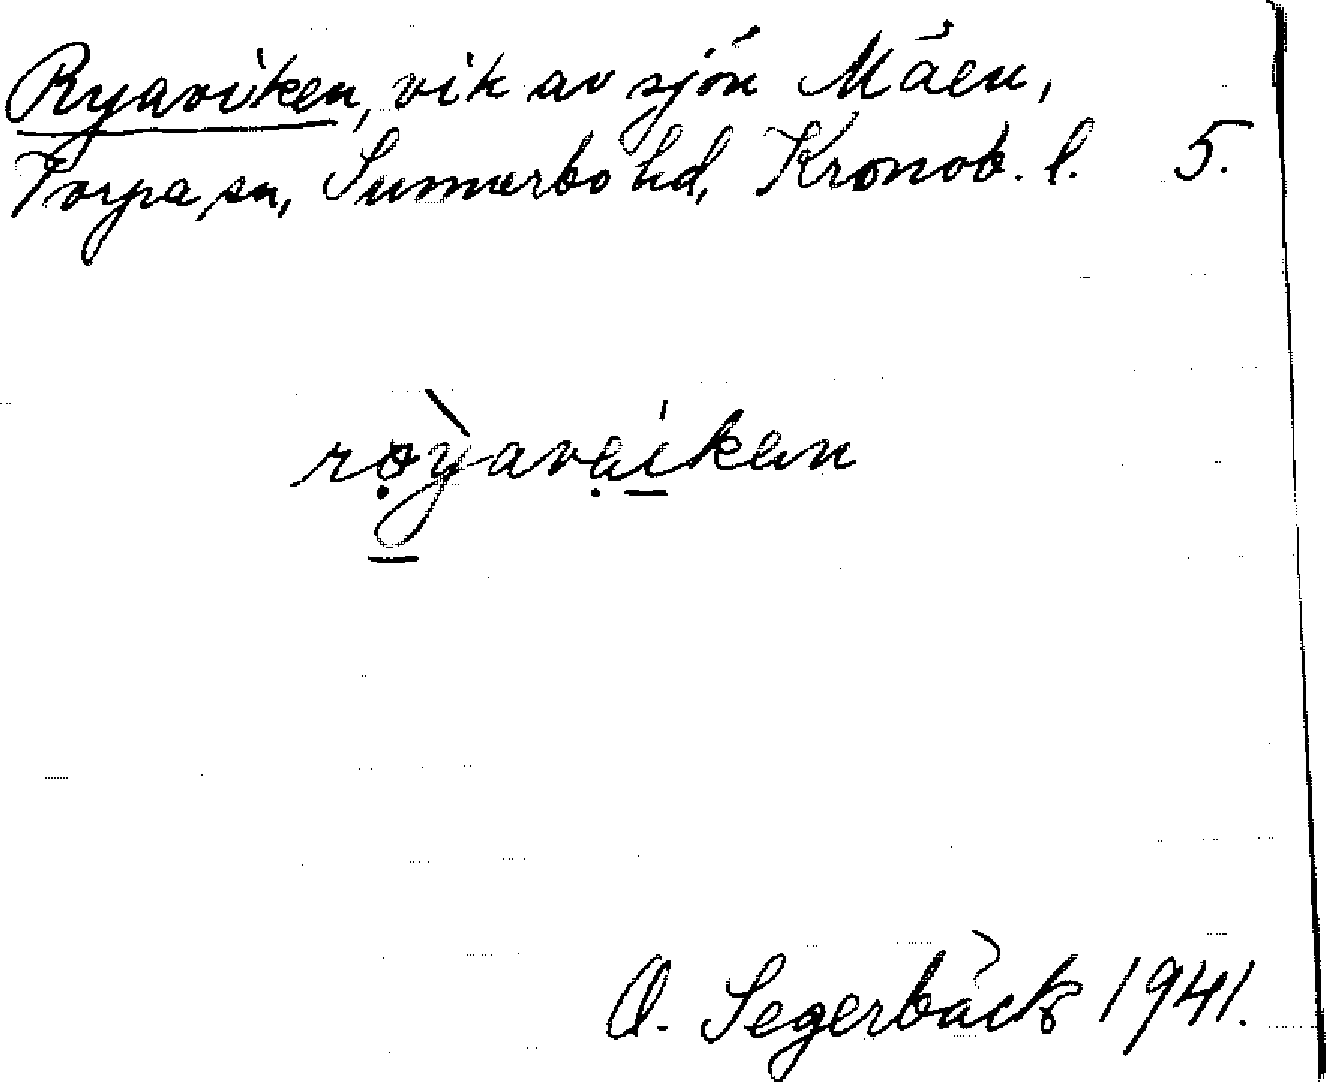 Ryaviken, vik av sjön Måen,
Torpa sn, Sunnerbo hd, Kronob. l. 5.
rø̣̀y̠avẹi̠ken
O. Segerbäck 1941.